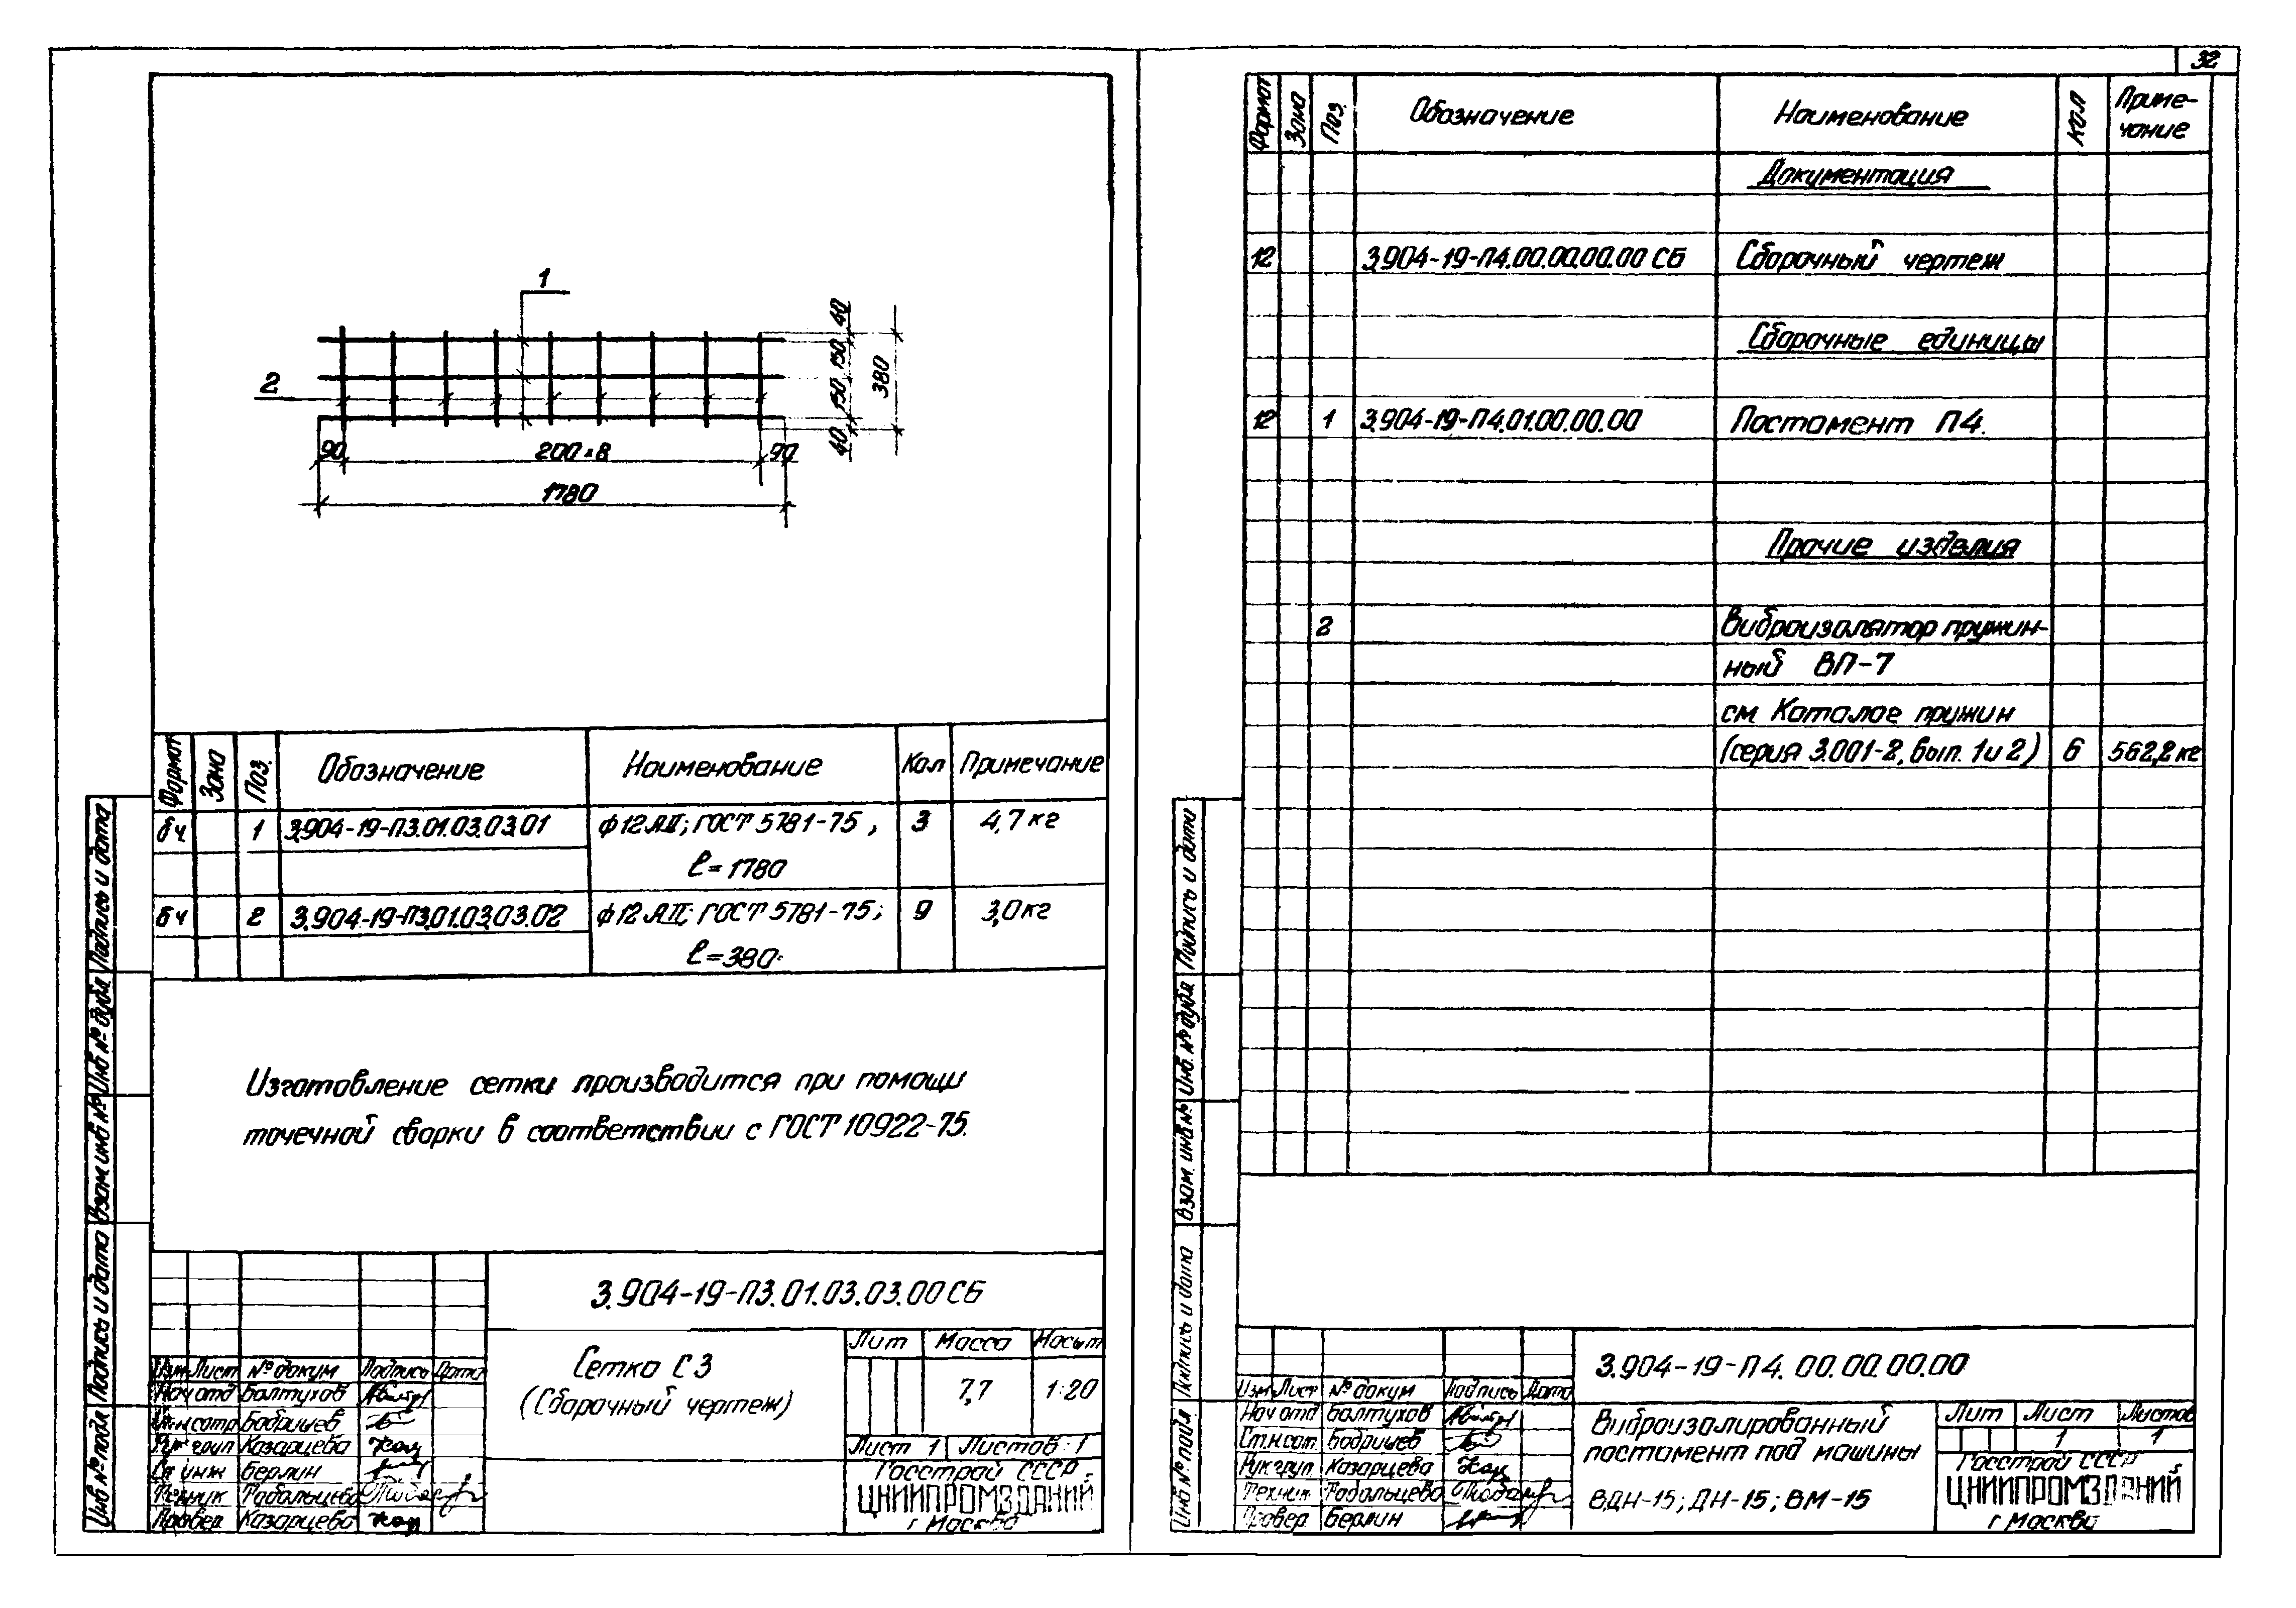 32
1
2
40
150
150
40
380
90
200×8
90
1780
Формат
Зона
Поз.
Обозначение
Наименование
Кол
Примечание
бч
1
3.904-19-П3.01.03.03.01
ф12АII; ГОСТ 5781-75,
3
4,7 кг
ℓ=1780
бч
2
3.904-19-П3.01.03.03.02
ф12АII; ГОСТ 5781-75;
9
3,0 кг
ℓ=380
Изготовление сетки производится при помощи
точечной сварки в соответствии с ГОСТ 10922-75.
Подпись и дата
Инв № дубл
Взам инв №
Подпись и дата
Инв № подл
3.904-19-П3.01.03.03.00 СБ
Сетка С3
(Сборочный чертеж)
Лит
Масса
Масшт
7,7
1:20
Лист 1
Листов 1
Госстрой СССР
ЦНИИПРОМЗДАНИЙ
г Москва
Изм Лист № докум Подпись Дата
Нач отд Балтухов
Ст.н.сотр Бобришев
Рук груп Казарцева
Ст инж Берлин
Техник Табольцева
Провер. Казарцева
Формат
Зона
Поз.
Обозначение
Наименование
Кол
Приме-
чание
Документация
12
3.904-19-П4.00.00.00.00 СБ
Сборочный чертеж
Сборочные единицы
12
1
3.904-19-П4.01.00.00.00
Постамент П4.
Прочие изделия
2
Виброизолятор пружин-
ный ВП-7
см Каталог пружин
(серия 3.001-2, вып. 1 и 2)
6
562,2 кг
Подпись и дата
Инв. № дубл
Взам. инв №
Подпись и дата
Инв № подл
3.904-19-П4.00.00.00.00
Изм Лист № докум Подпись Дата
Нач отд Балтухов
Ст.н.сот. Бобришев
Рук груп Казарцева
Техник Табольцева
Провер Берлин
Виброизолированный
постамент под машины
ВДН-15; ДН-15; ВМ-15
Лит
Лист
Листов
1
1
Госстрой СССР
ЦНИИПРОМЗДАНИЙ
г Москва